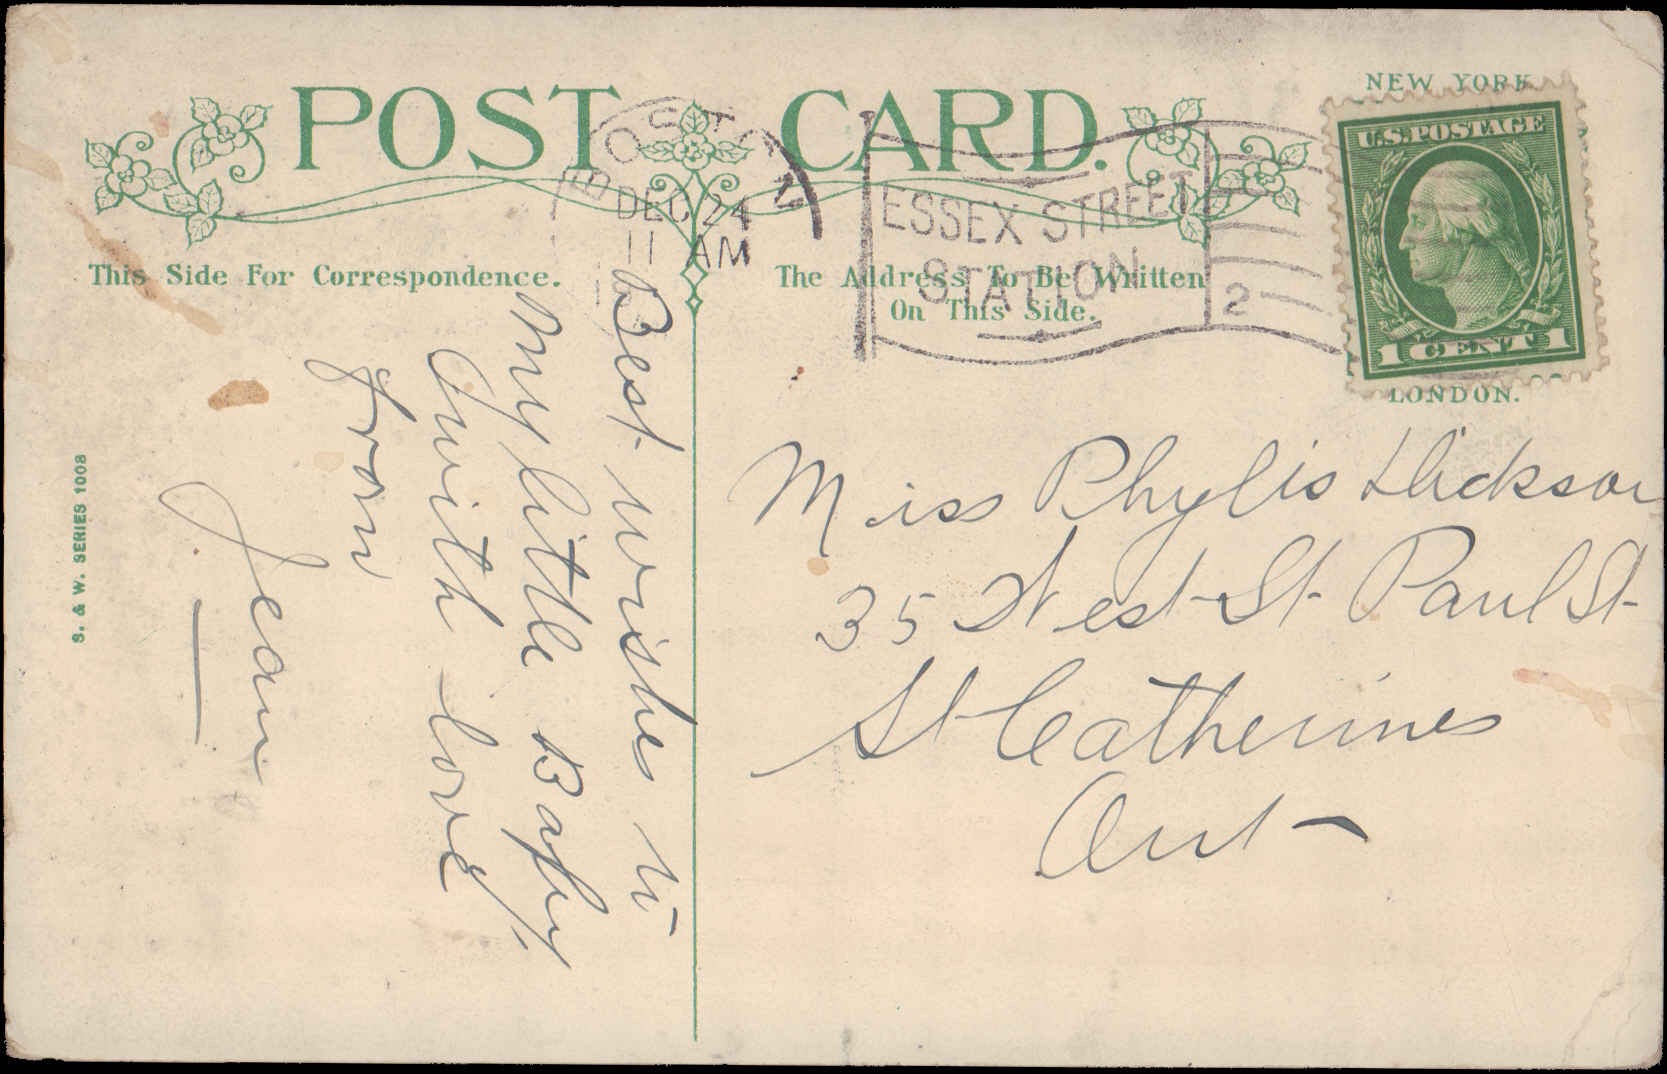 POST CARD.
NEW YORK
LONDON.
U.S. POSTAGE
1 CENT 1
BOSTON
DEC 24
11 AM
ESSEX STREET
STATION
2
This Side For Correspondence.
The Address To Be Written
On This Side.
S. & W. SERIES 1008
Best wishes to
my little Baby
with love
from
Jean
Miss Phylis Dickson
35 West St. Paul St
St Catherines
Ont